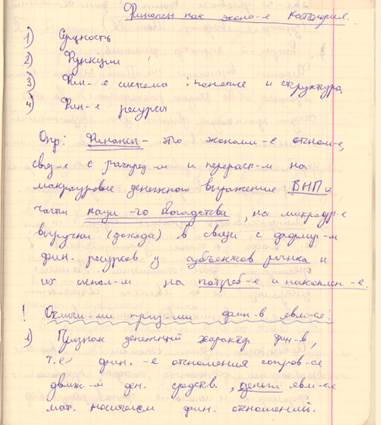 Финансы как экон-я категория.
1) Сущность
2) Функции
3) Фин-я система: понятие и структура
4) Фин-е ресурсы
Опр: Финансы - это экономи-е отнош-е,
связ-е с распред-м и перерасп-м на
макроуровне денежного выражение ВНП и
части наци-го богадства, на микроур-е
выручки (дохода) в связи с формир-м
фин. ресурсов у субъектов рынка и
их использ-м на потреб-е и накоплен-е.
! Отличи-ми приз-ми фин-в явл-ся:
1) Признак денежный характер фин-в,
т.е фин.-е отношения сопров-ся
движ-м ден. средств, деньги явл-ся
мат. носителем фин. отношений.